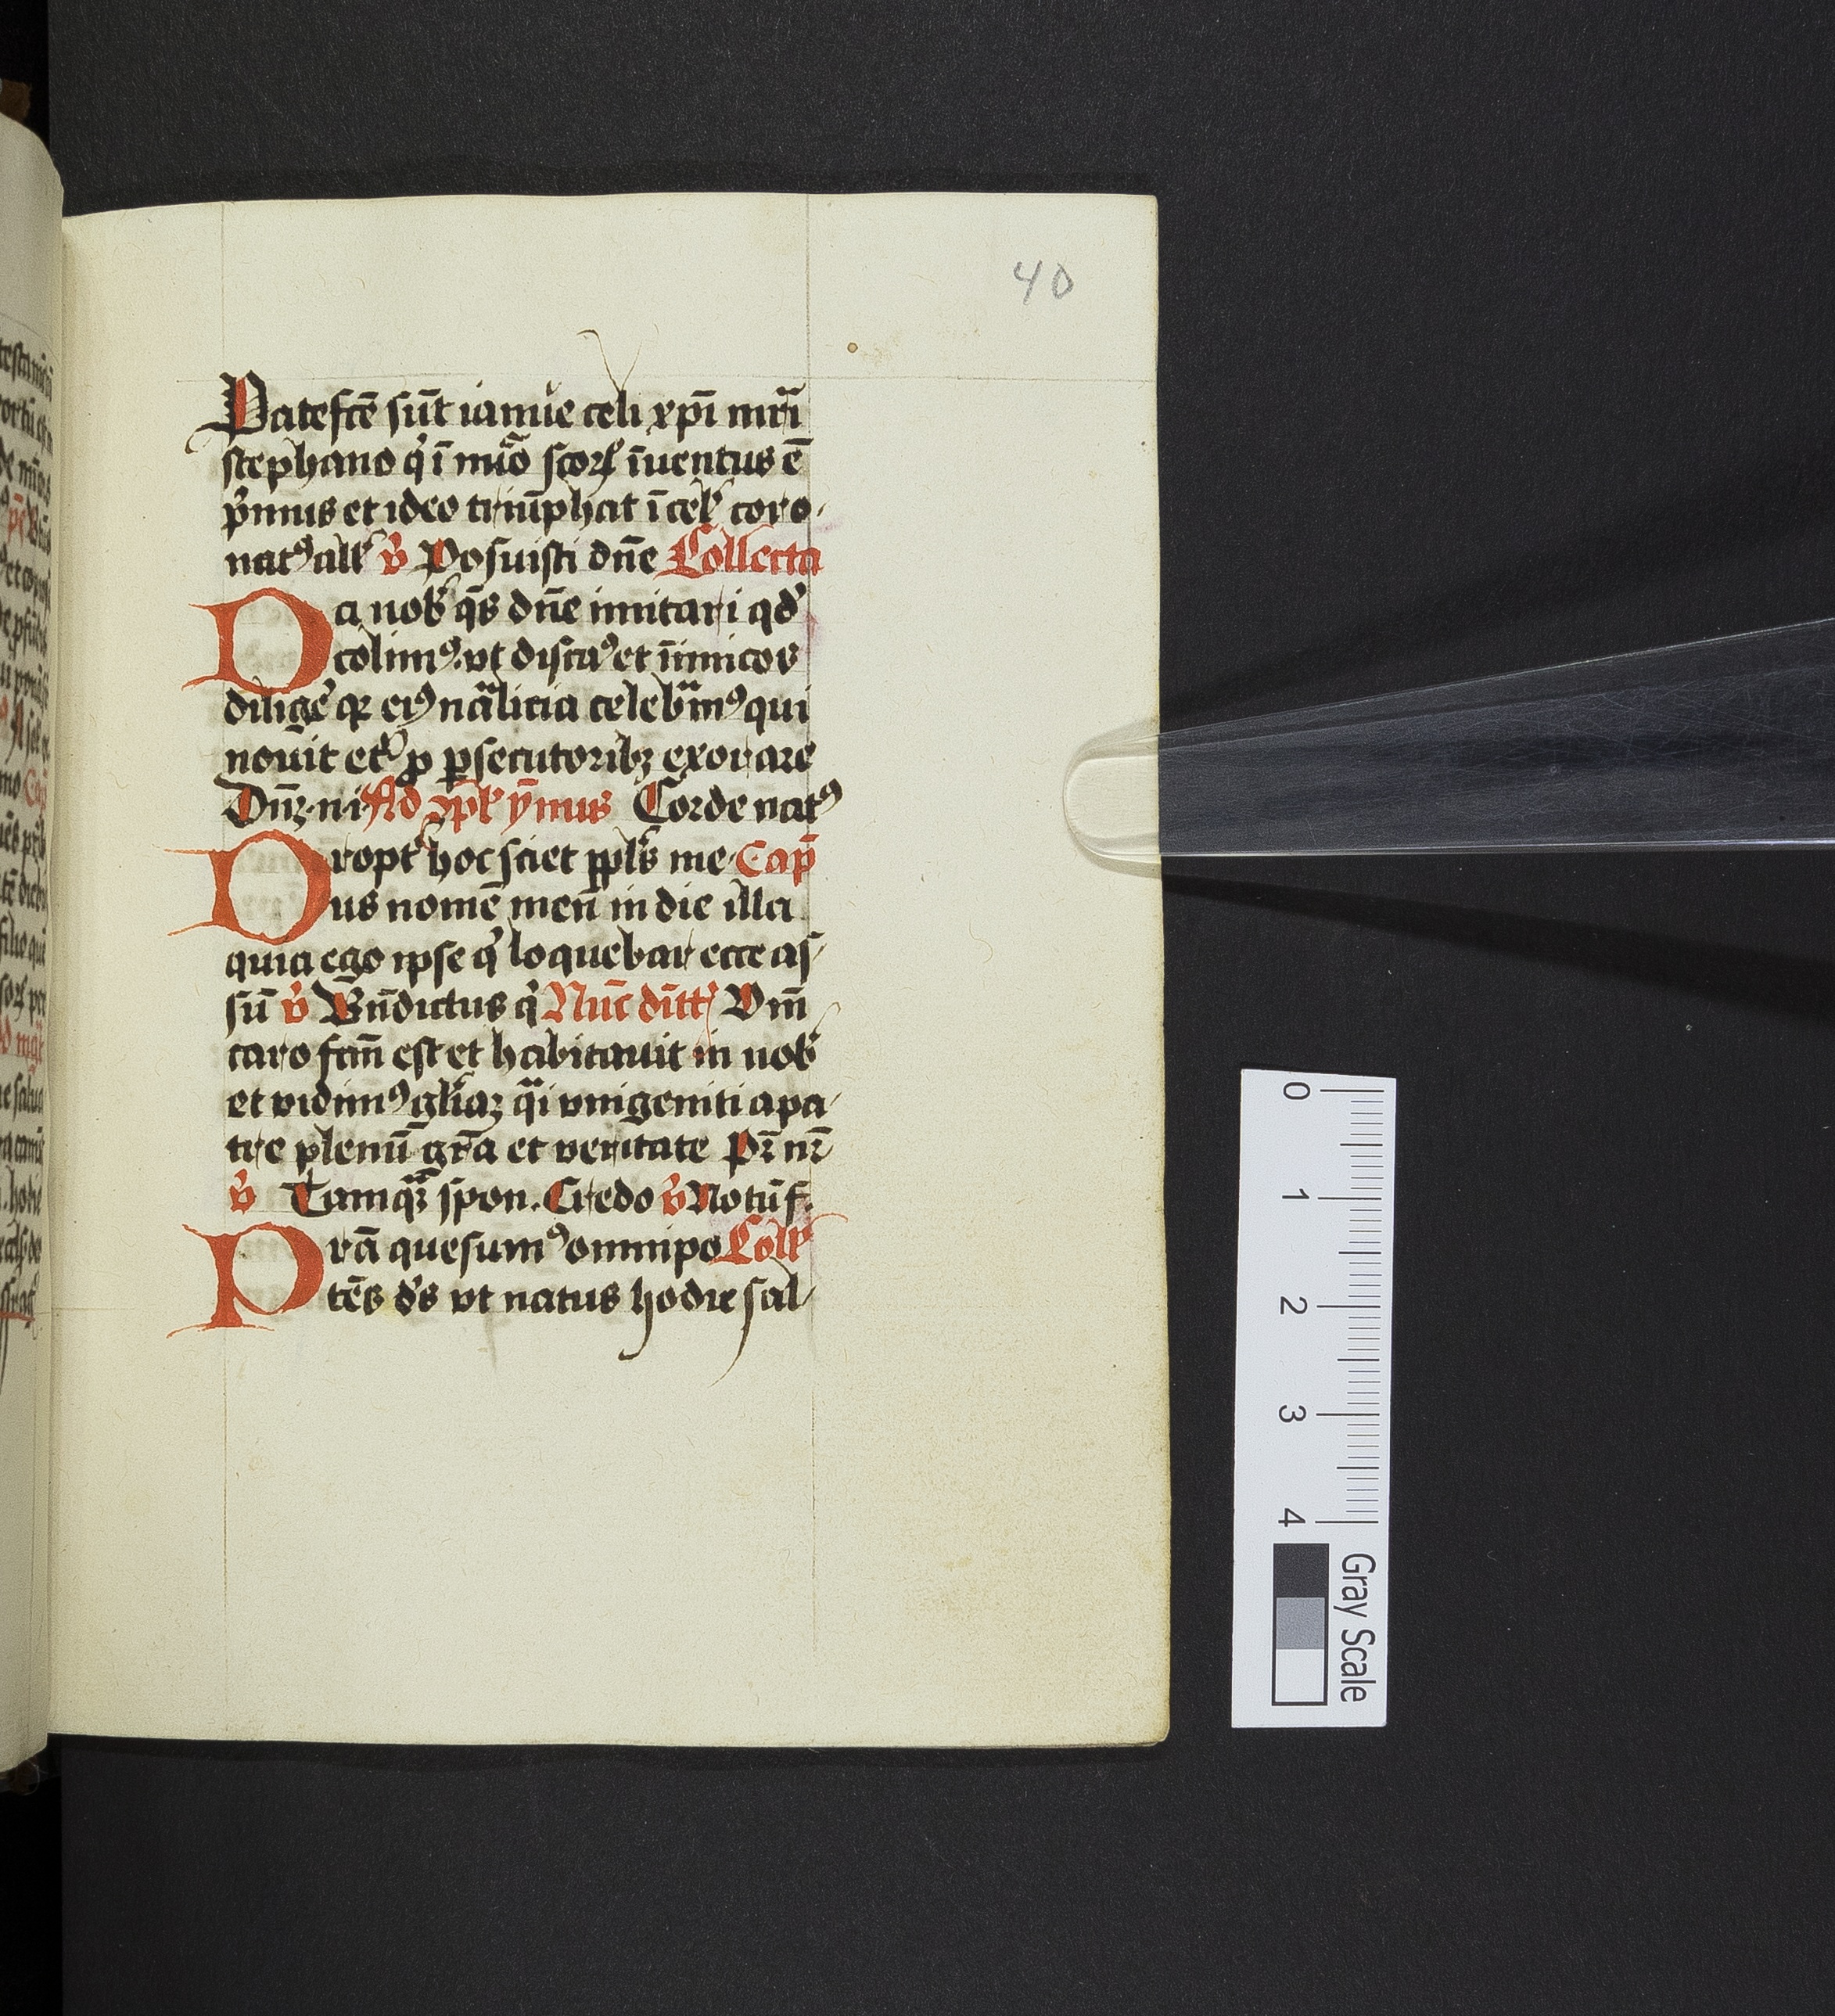 40
Patefcē sūt iamie celi xp̄i mr̄i
stephano qͥ ī nūo scoꝝ īuentus ē
pͥmus et ideo triūphat ī celꝭ coro
natꝰ all᷒ ℣ Posuisti dn̄e Collecta
Da nob᷒ qs̄ dn̄e imitari qd̕
colimꝰ. vt discaꝰ et inimicos
dilige̕ qꝛ eiꝰ nͣalicia celebͣmꝰ qui
nouit etͥ ꝓ ꝑsecutoribꝫ exorare
Dn̄ꝫ. n. i Ad ꝯpl᷒ ymus Corde natꝰ
Propt̕ hoc sciet ppl̕s me. Cap̄
us nomē meū in die illa
quia ego ipse qͥ loquebar ecce as
sū ℣ Bn̄dictus qͥ Nūc dītt᷒ Vm̄
caro fcm̄ est et habitauit in nob᷒
et vidimꝰ gl̕iaꝫ qͣi vnigeniti a pa
tre plenū gr̄a et veritate Pr̄ nr̄
℣ Tamqͣꝫ spon. Credo ℣ Notū f.
Prā quesumꝰ omnipo Coll᷒
tēs d̕s vt natus hodie sal
0
1
2
3
4
Gray Scale